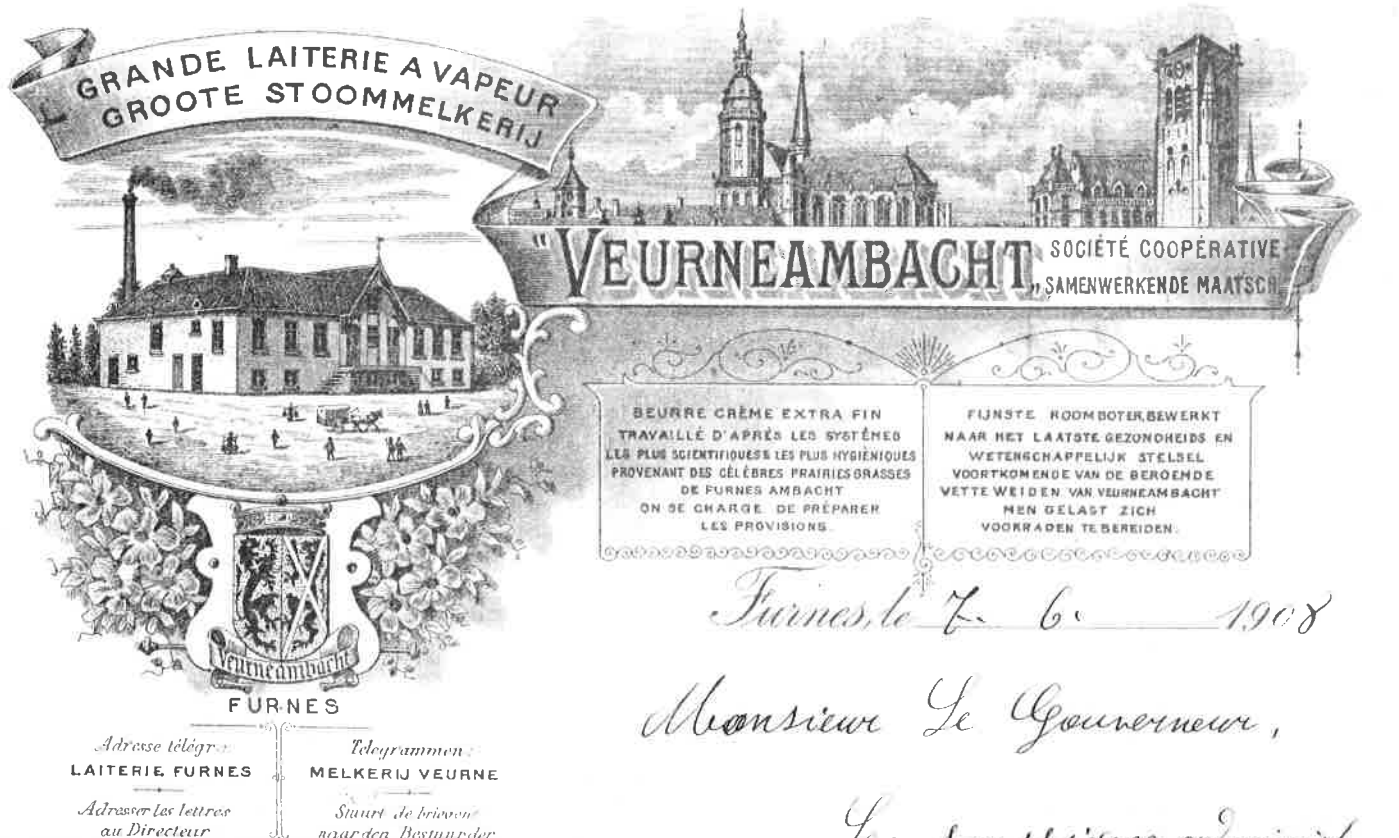 GRANDE LAITERIE A VAPEUR
GROOTE STOOMMELKERIJ
"VEURNEAMBACHT„
SOCIÉTÉ COOPÉRATIVE
SAMENWERKENDE MAATSCH
BEURRE CRÈME EXTRA FIN
TRAVAILLÉ D'APRÈS LES SYSTÊMES
LES PLUS SCIENTIFIQUES & LES PLUS HYGIÉNIQUES
PROVENANT DES CÉLÈBRES PRAIRIES GRASSES
DE FURNES AMBACHT
ON SE CHARGE DE PRÉPARER
LES PROVISIONS.
FIJNSTE ROOMBOTER, BEWERKT
NAAR HET LAATSTE GEZONDHEIDS EN
WETENSCHAPPELIJK STELSEL
VOORTKOMENDE VAN DE BEROEMDE
VETTE WEIDEN VAN VEURNEAMBACHT
MEN GELAST ZICH
VOORRADEN TE BEREIDEN.
Furnes, le 7. 6. 1908
Monsieur Le Gouverneur,
Veurneambacht
FURNES
Adresse télégr:
LAITERIE FURNES
Adresser les lettres
au Directeur
Telegrammen:
MELKERIJ VEURNE
Stuurt de brieven
naar den Bestuurder